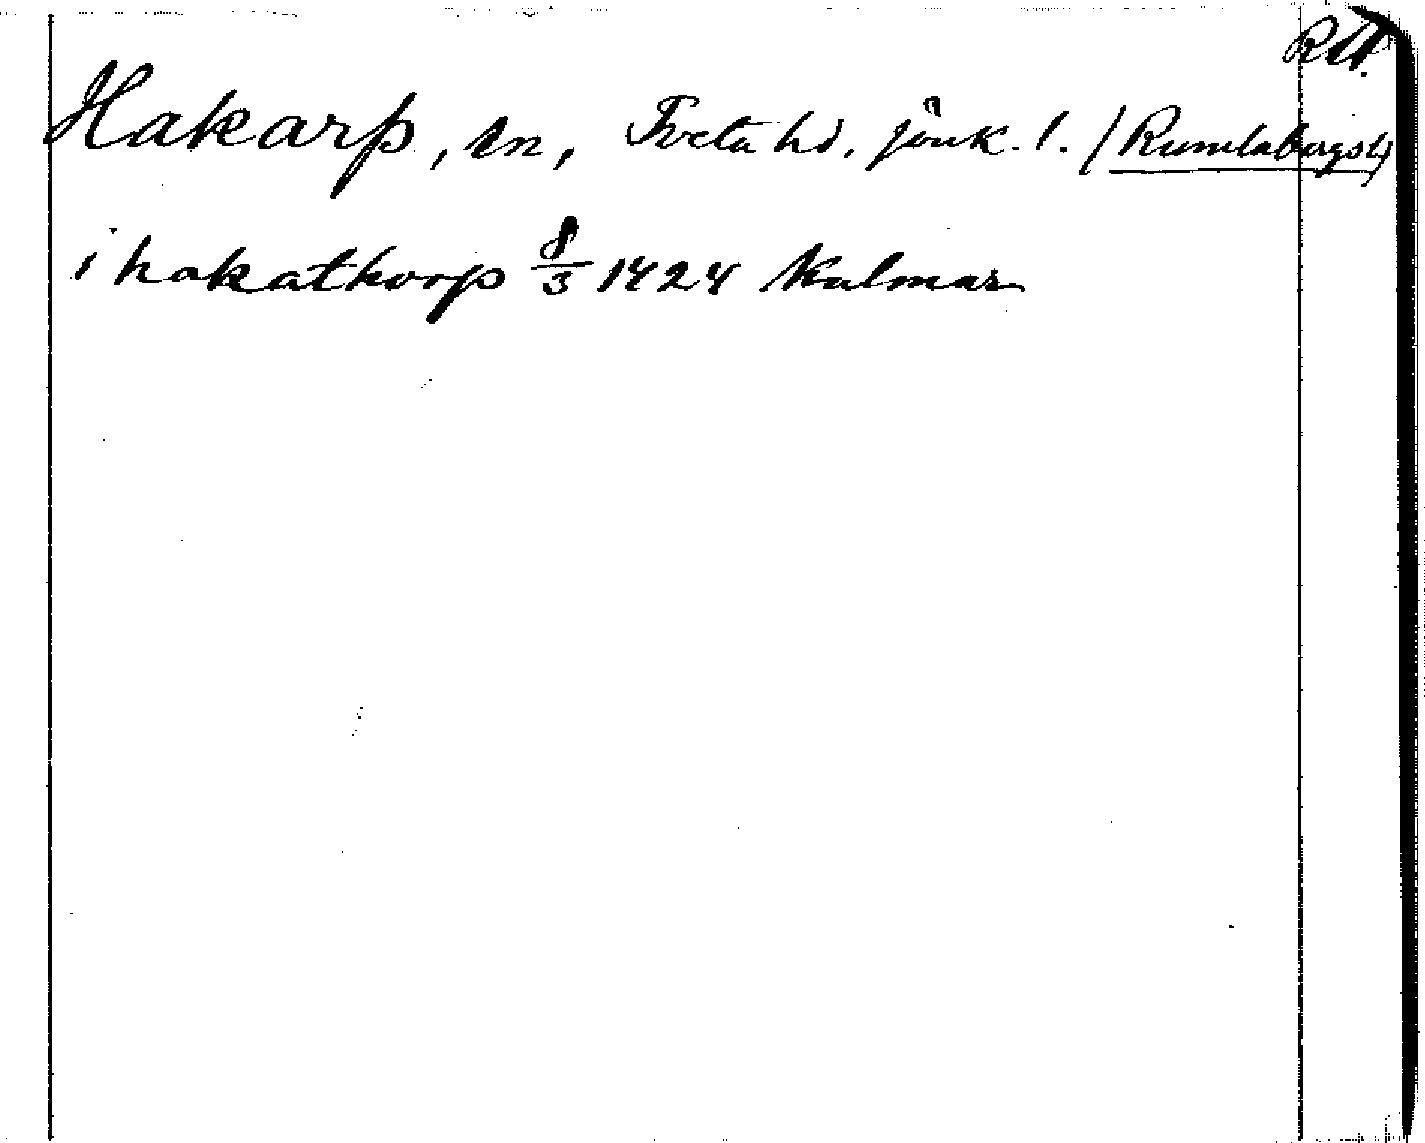 RA.
Hakarp, sn, Tveta hd, Jönk. l. (Rumlaborgsl)
i hakathorp 8/3 1424 Kalmar